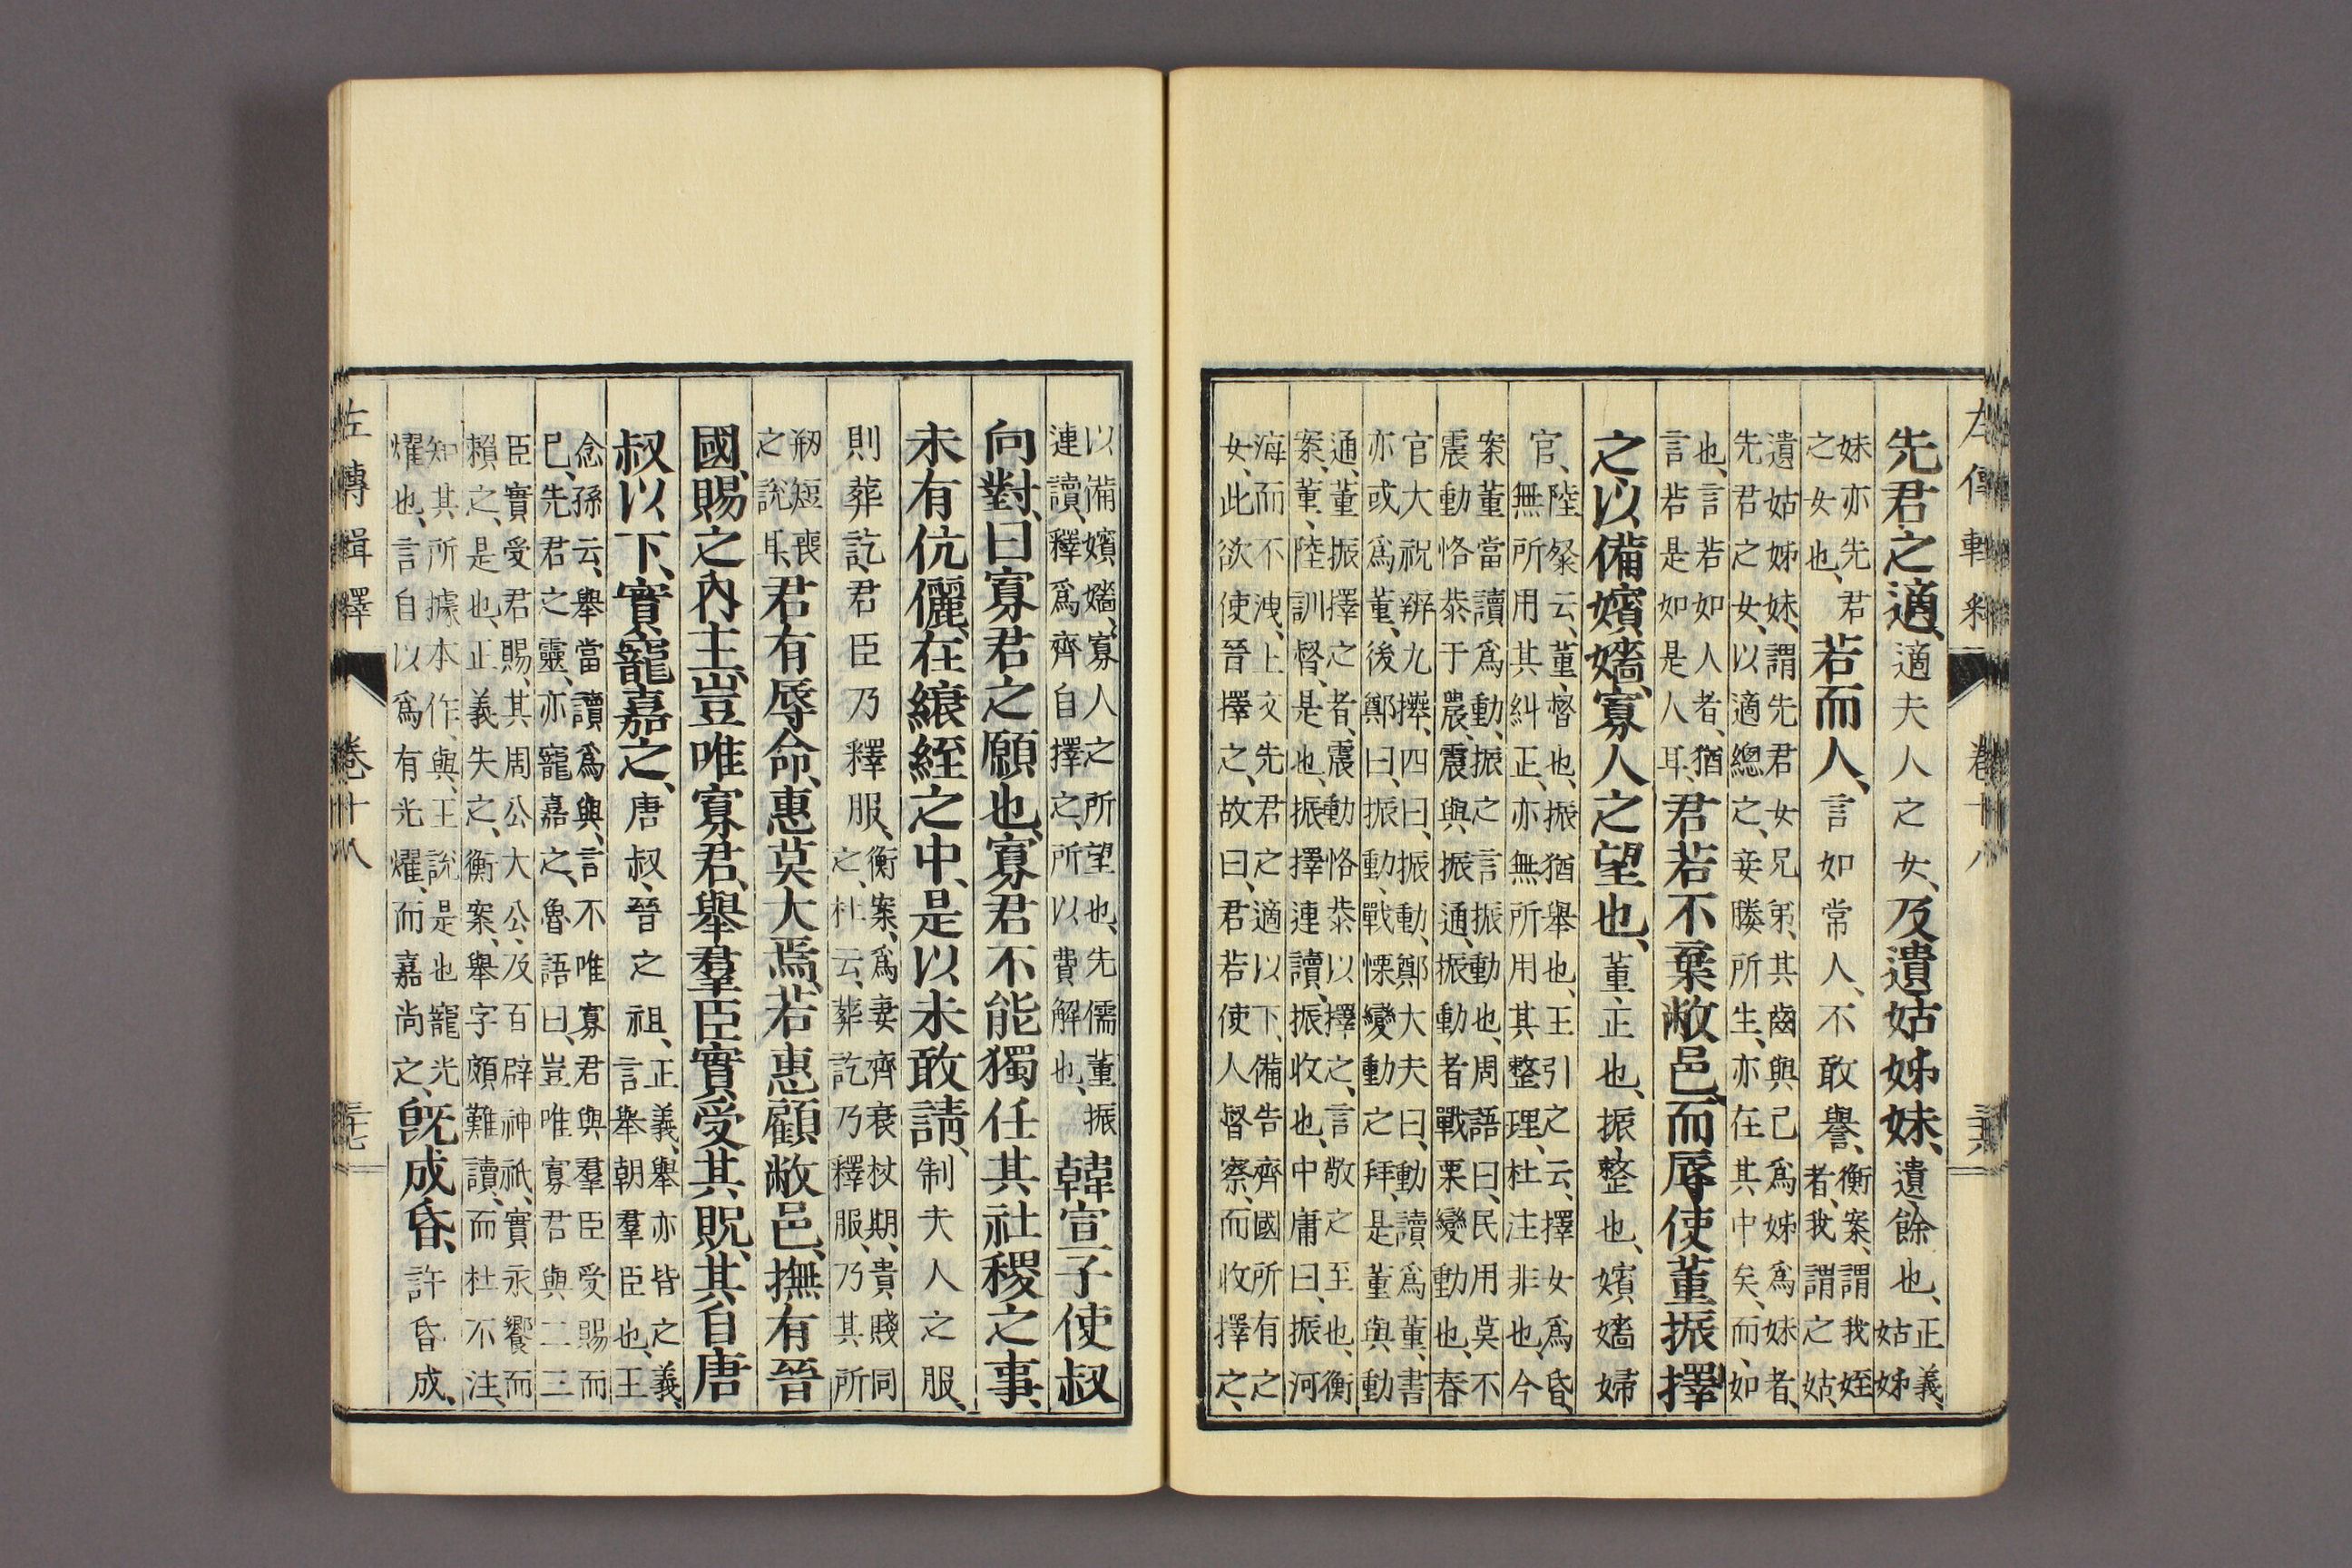 先君之適、適夫人之女、及遺姑姊妹、遺餘也、正義、姑姊
妹亦先君之女也、若而人、言如常人、不敢譽、衡案、謂我姪者、我謂之姑、
遺姑姊妹、謂先君女兄弟、其齒與己爲姊妹者、
先君之女、以適總之、妾媵所生、亦在其中矣、而、如
也、言若如人者、猶言若是如是人耳、君若不棄敝邑、而辱使董振擇
之、以備嬪嬙、寡人之望也、董正也、振整也、嬪嬙婦
官、陸粲云、董督也、振猶舉也、王引之云、擇女爲昏、
無所用其糾正、亦無所用其整理、杜注非也、今
案董當讀爲動、振之言振動也、周語曰、民用莫不
震動恪恭于農、震與振通、振動者戰栗變動也、春
官大祝辨九𢷎、四曰、振動、鄭大夫曰、動讀爲董、書
亦或爲董、後鄭曰、振動、戰慄變動之拜、是董與動
通、董振擇之者、震動恪恭以擇之、言敬之至也、衡
案、董、陸訓督、是也、振擇連讀、振收也、中庸曰、振河
海而不洩、上文先君之適以下、備告齊國所有之
女、此欲使晉擇之、故曰、君若使人督察、而收擇之、
以備嬪嬙、寡人之所望也、先儒董振
連讀、釋爲齊自擇之、所以費解也、韓宣子使叔
向對、曰寡君之願也、寡君不能獨任其社稷之事、
未有伉儷、在縗絰之中、是以未敢請、制夫人之服、
則葬訖君臣乃釋服、衡案、爲妻齊衰杖期、貴賤同
之、杜云、葬訖乃釋服、乃其所
剏短喪之說耳、君有辱命、惠莫大焉、若惠顧敝邑、撫有晉
國、賜之內主、豈唯寡君、舉羣臣實受其貺、其自唐
叔以下、實寵嘉之、唐叔、晉之祖、正義、舉亦皆之義、
言舉朝羣臣也、王
念孫云、舉當讀爲與、言不唯寡君與羣臣受賜而
已、先君之靈、亦寵嘉之、魯語曰、豈唯寡君與二三
臣實受君賜、其周公大公、及百辟神祇、實永饗而
賴之、是也、正義失之、衡案、舉字頗難讀、而杜不注、
知其所據本作與、王說是也寵光
燿也、言自以爲有光燿、而嘉尚之、旣成昏、許昏成、
左傳輯釋 卷十八 三十七